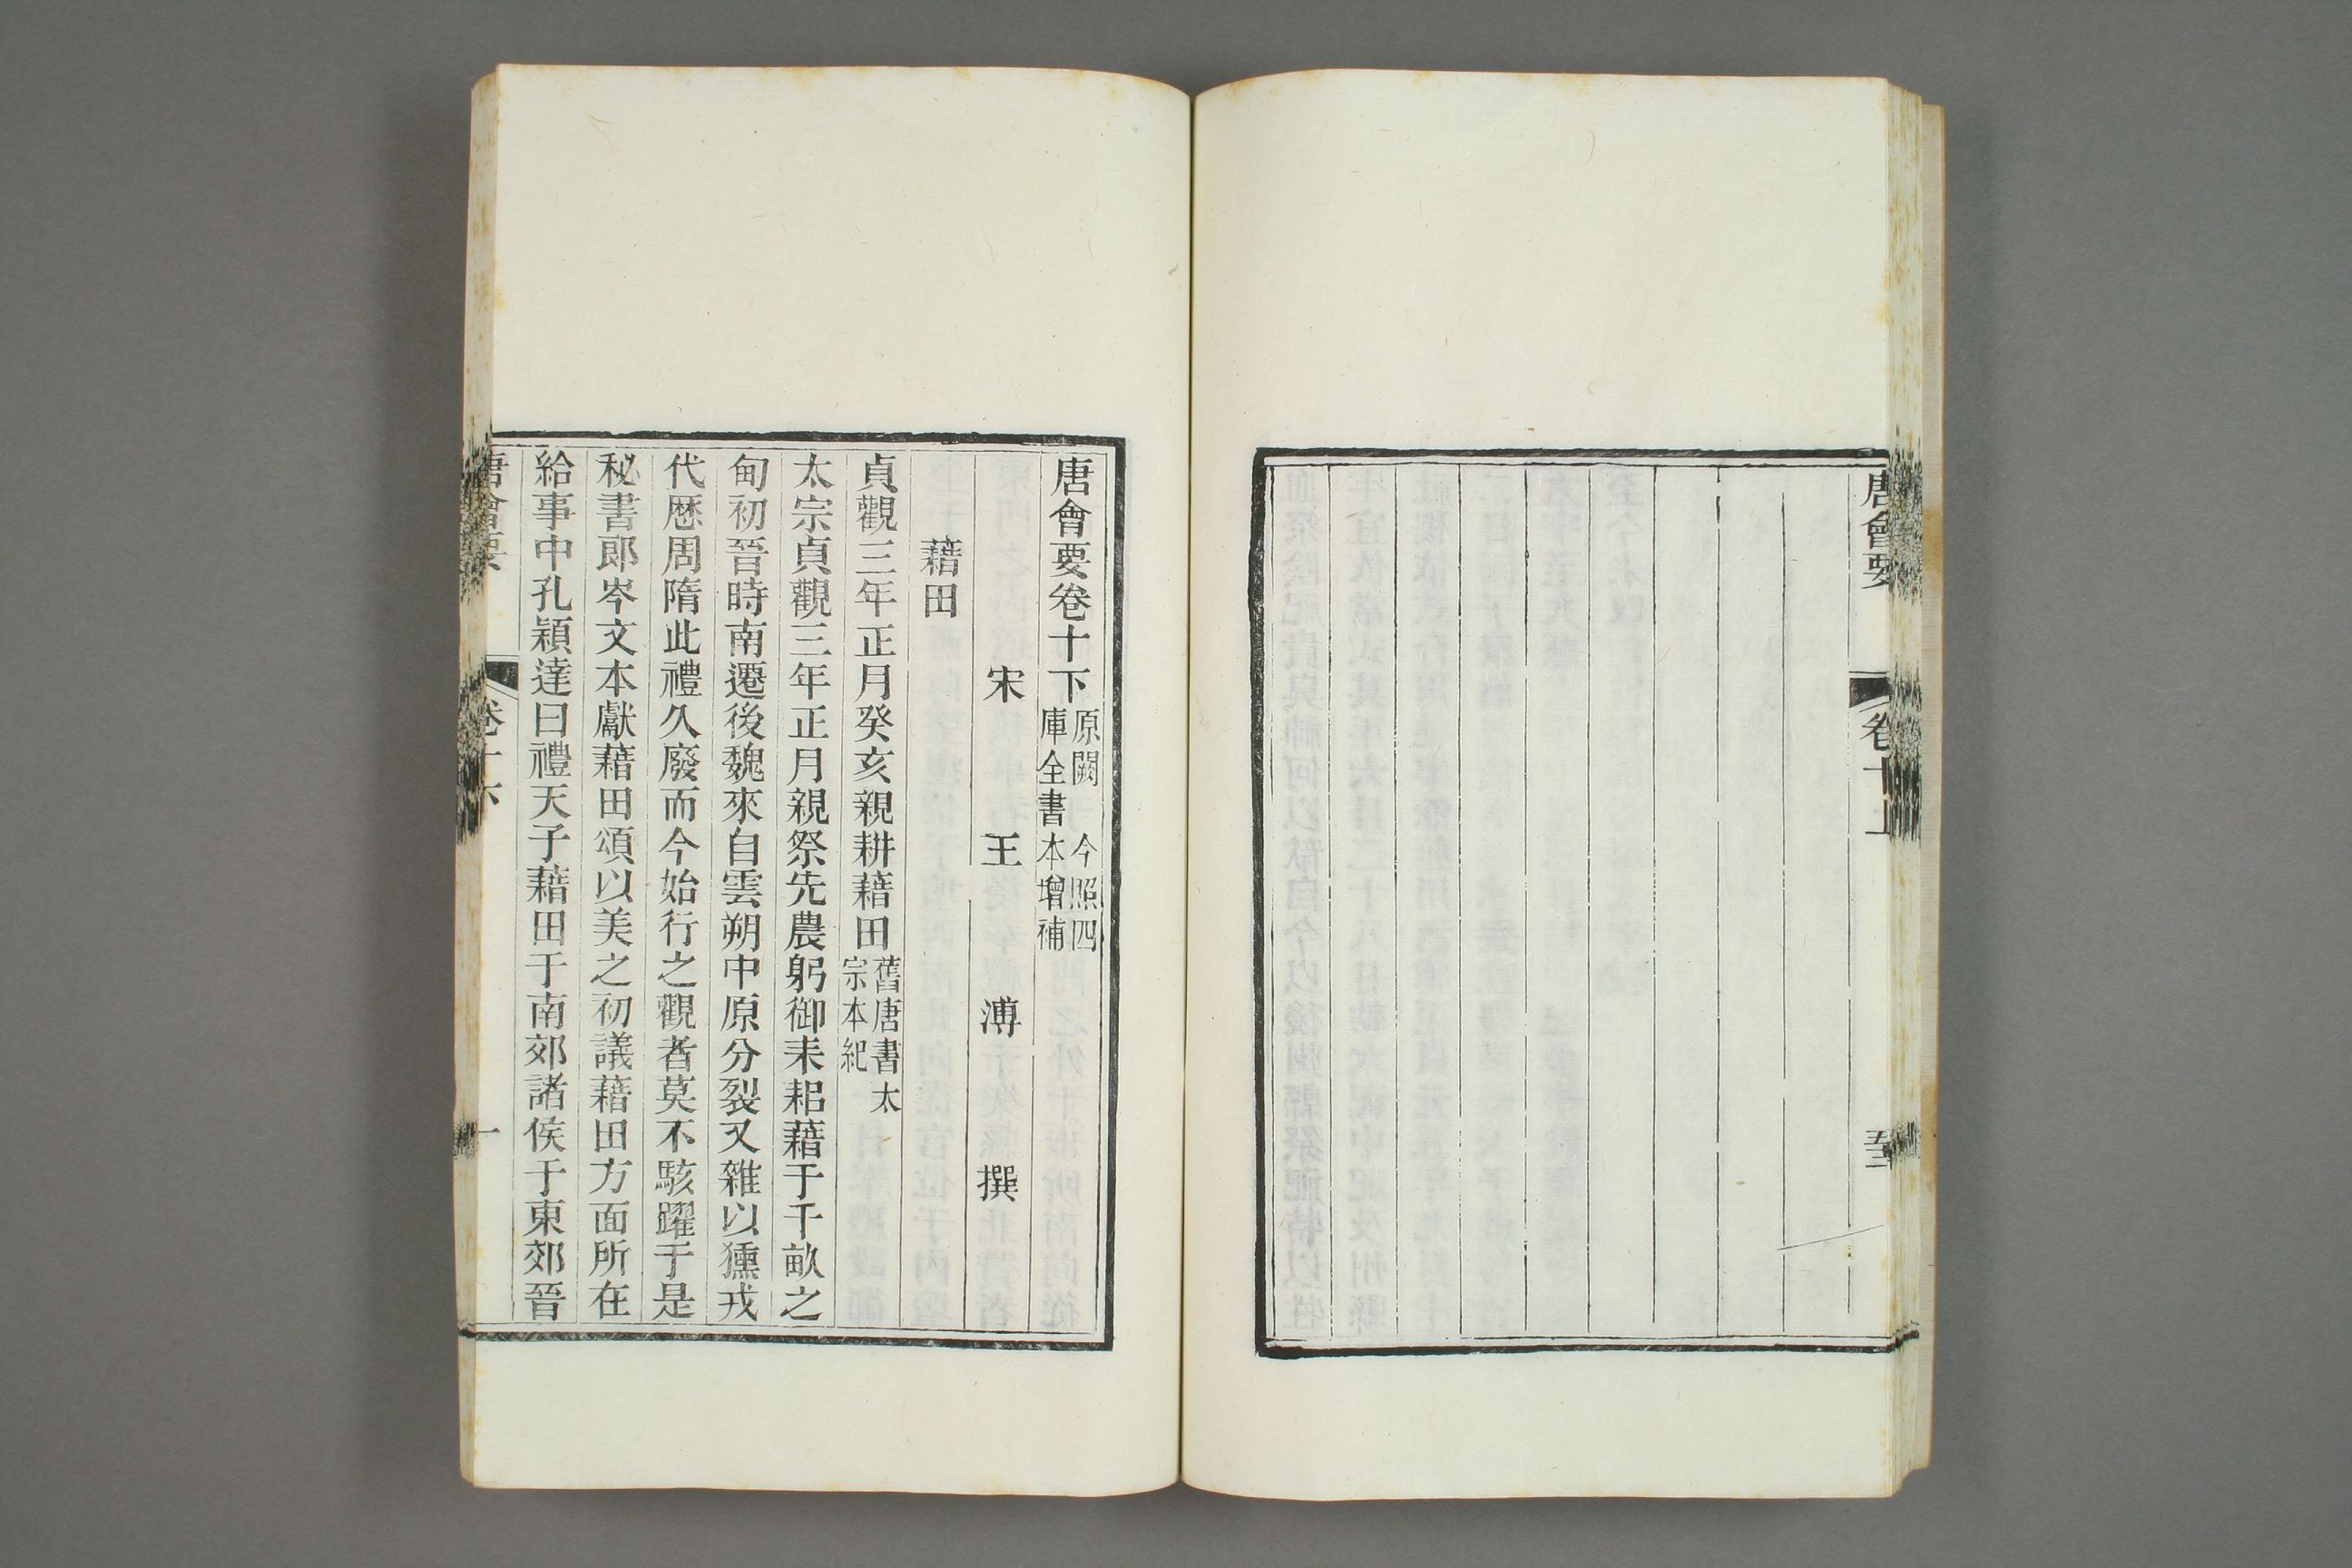 唐會要
卷十上
唐會要卷十下原闕今照四庫全書本增補
宋王溥撰
藉田
貞觀三年正月癸亥親耕藉田舊唐書太宗本紀
太宗貞觀三年正月親祭先農躬御耒耜藉于千畝之
甸初晉時南遷後魏來自雲朔中原分裂又雜以獯戎
代歷周隋此禮久廢而今始行之觀者莫不駭躍于是
秘書郎岑文本獻藉田頌以美之初議藉田方面所在
給事中孔穎達曰禮天子藉田于南郊諸侯于東郊晉
唐會要
卷十下
一